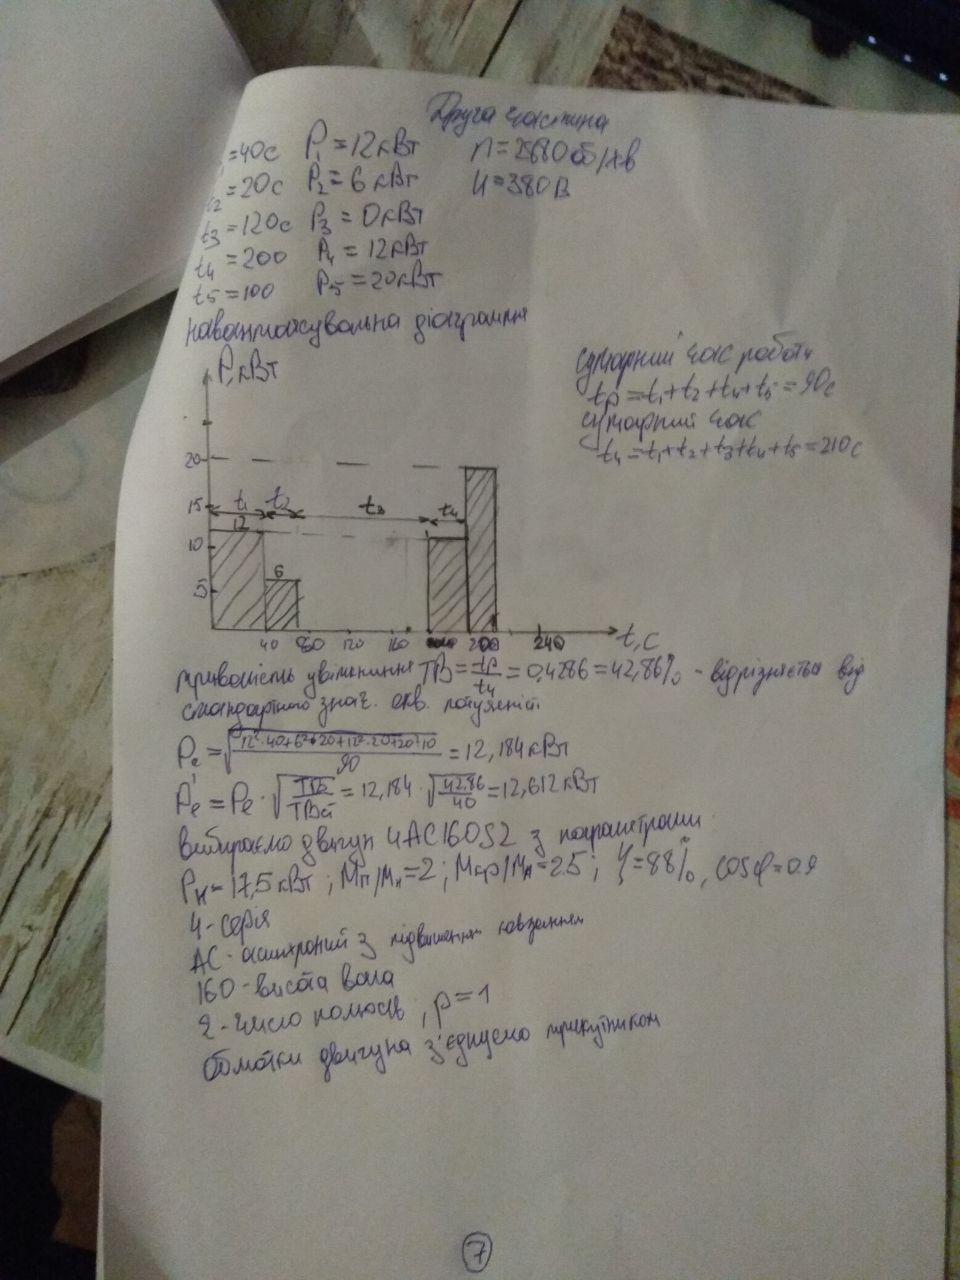 Друга частина
=40с P₁=12кВт n=2680об/хв
t₂=20с P₂=6кВт U=380В
t₃=120с P₃=0кВт
t₄=200 P₄=12кВт
t₅=100 P₅=20кВт
навантажувальна діаграма
P,кВт
сумарний час роботи
tр=t₁+t₂+t₄+t₅=90с
сумарний час
tч=t₁+t₂+t₃+t₄+t₅=210с
20
15 t₁ t₂ t₃ t₄
12
10
6
5
40 80 120 160 200 240 t,с
тривалість увімкнення ТВ=tр/tч=0,4286=42,86% - відрізняється від
стандартного знач. екв. потужність
Pе=√(12²·40+6²·20+12²·20+20²·10/90)=12,184кВт
P'е=Pе·√(ТВ/ТВст)=12,184·√(42.86/40)=12,612кВт
вибираємо двигун 4АС160S2 з параметрами
Pн=17,5кВт; Мп/Мн=2; Мкр/Мн=2.5; η=88%, cosφ=0.9
4-серія
АС-асинхроний з підвишеним ковзанням
160-висота вала
2-число полюсів; p=1
Обмотки двигуна з'єднуємо трикутником
7